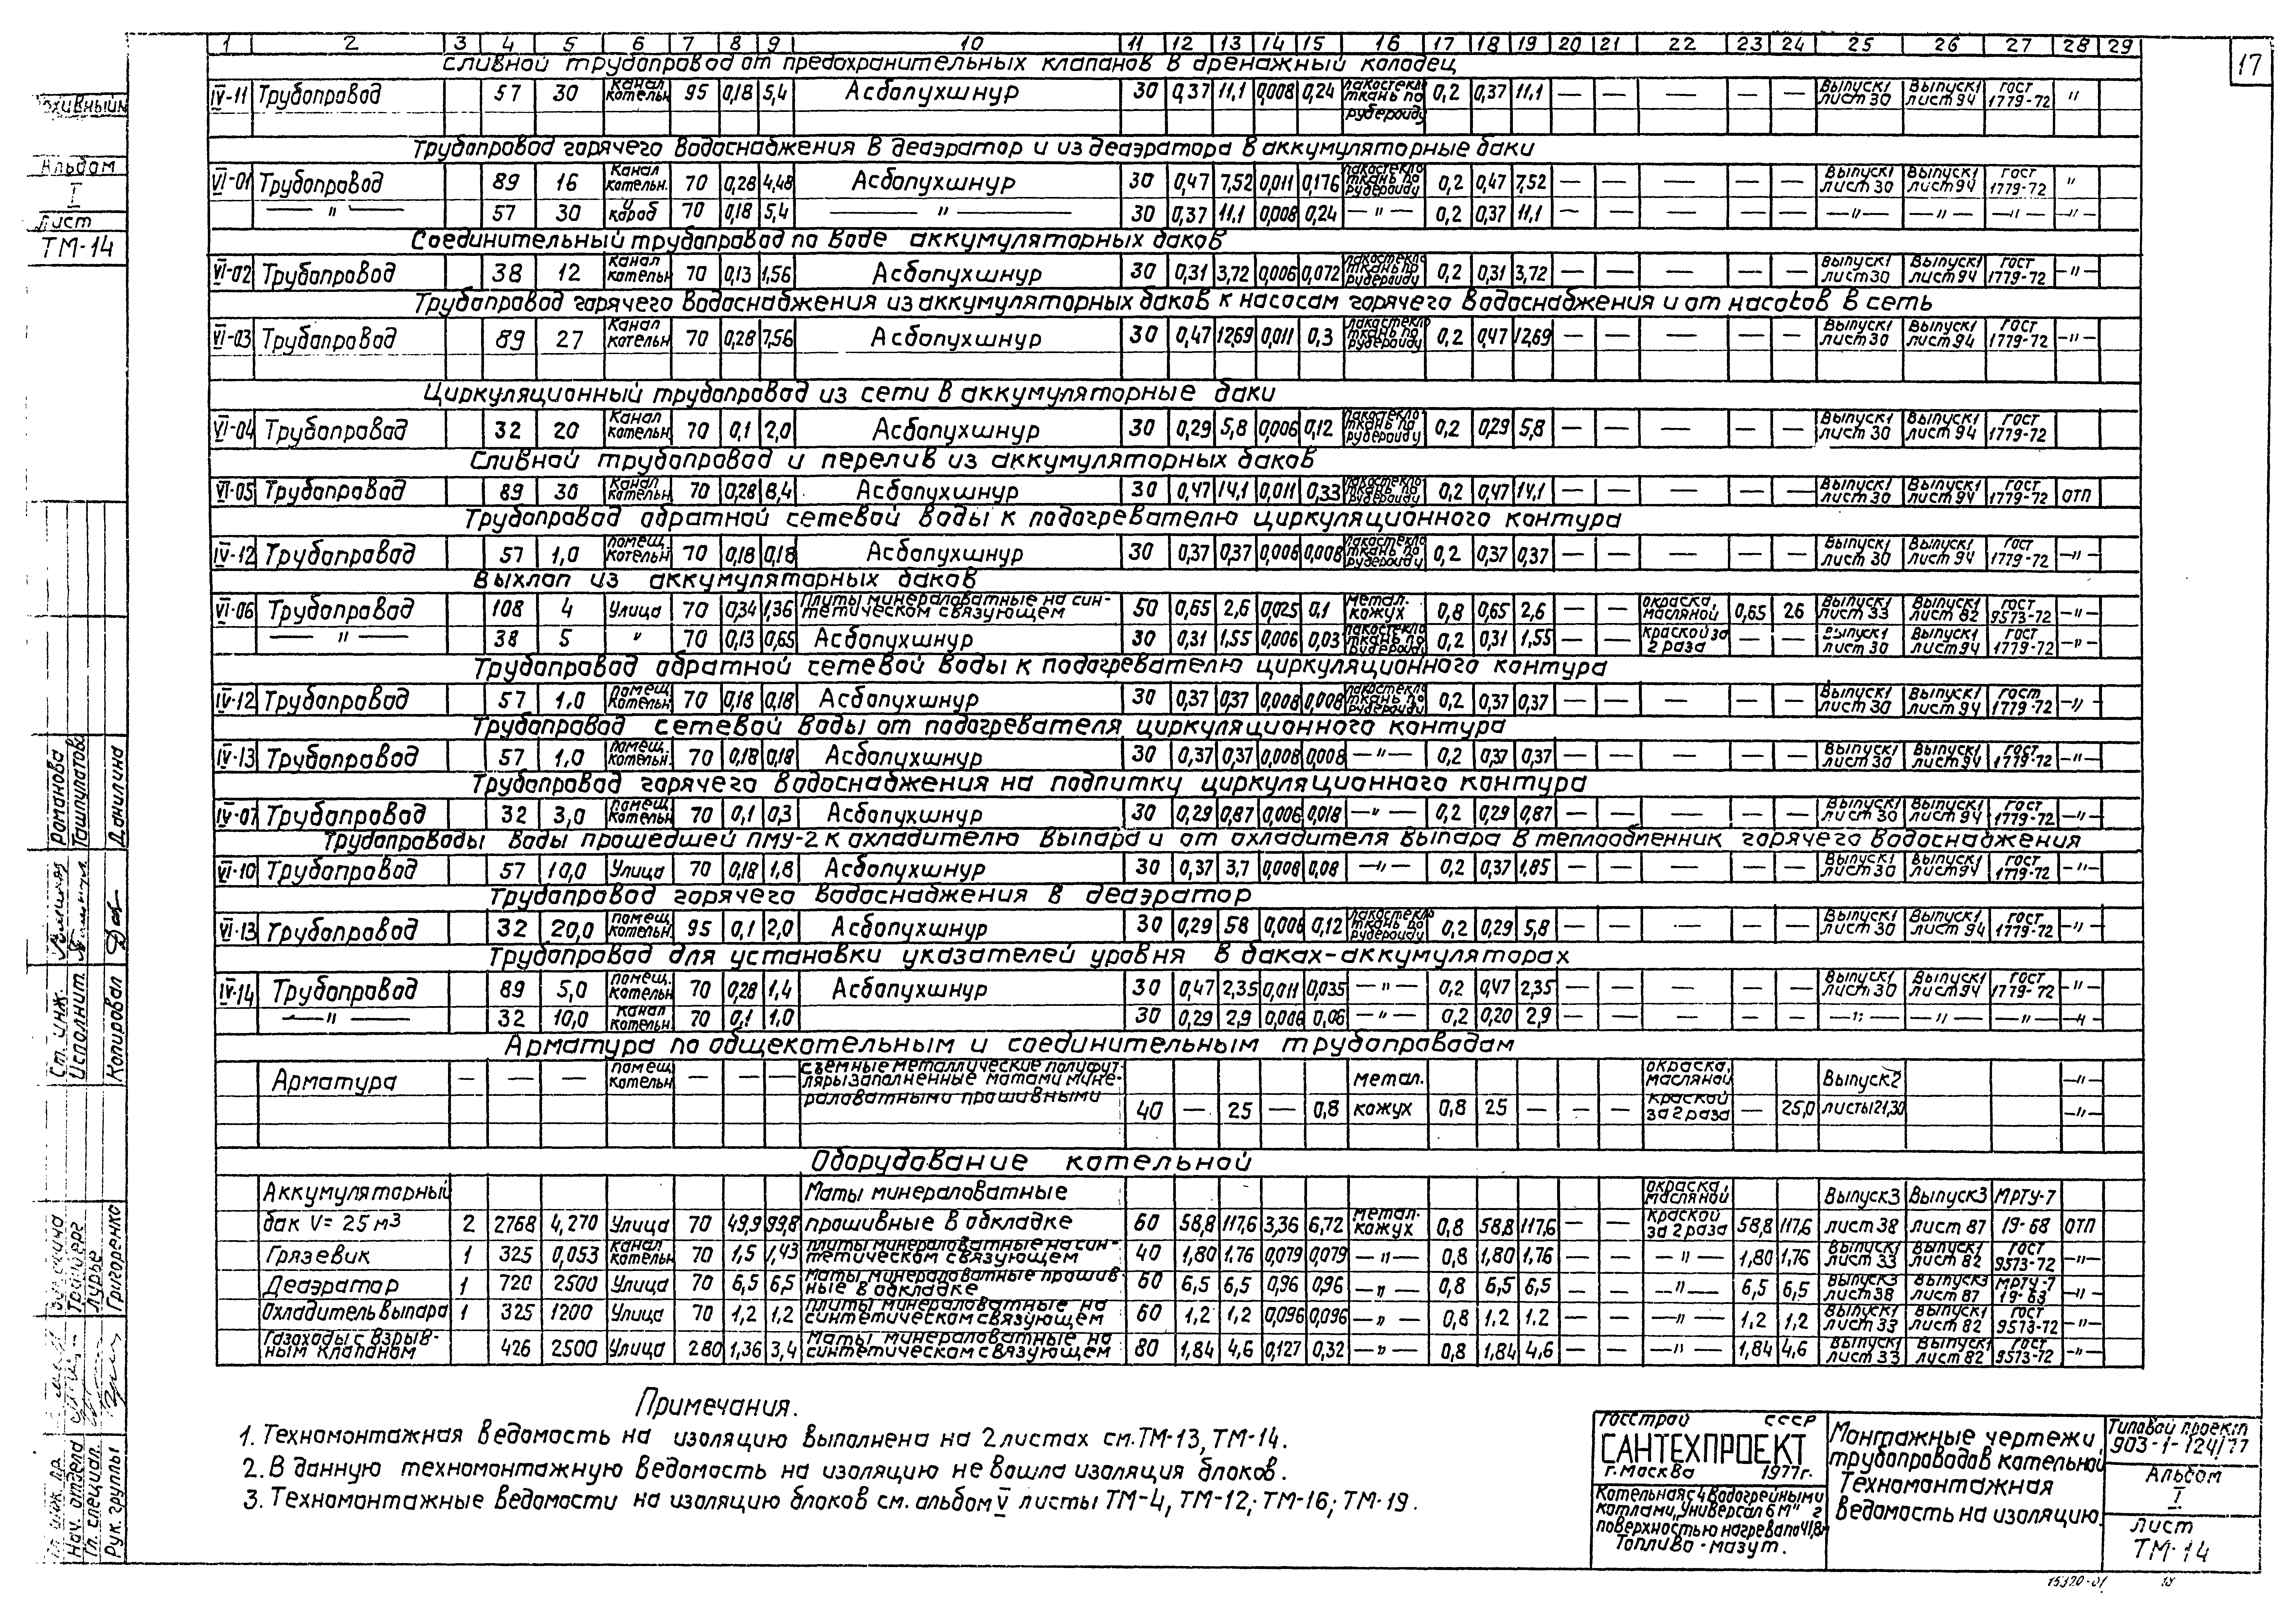 17
1 2 3 4 5 6 7 8 9 10 11 12 13 14 15 16 17 18 19 20 21 22 23 24 25 26 27 28 29
Сливной трубопровод от предохранительных клапанов в дренажный колодец
IV-11 Трубопровод 57 30 канал котельн 95 0,18 5,4 Асбопухшнур 30 0,37 11,1 0,008 0,24 лакостекло ткань по рубероиду 0,2 0,37 11,1 — — — — — Выпуск1 лист 30 Выпуск1 лист 94 гост 1779-72 "
Трубопровод горячего водоснабжения в деаэратор и из деаэратора в аккумуляторные баки
VI-01 Трубопровод 89 16 Канал котельн. 70 0,28 4,48 Асбопухшнур 30 0,47 7,52 0,011 0,176 лакостекло ткань по рубероиду 0,2 0,47 7,52 — — — — — Выпуск1 лист 30 Выпуск1 лист 94 гост 1779-72 "
— " — 57 30 короб 70 0,18 5,4 — " — 30 0,37 11,1 0,008 0,24 — " — 0,2 0,37 11,1 — — — — — — " — — " — — " — — " —
Соединительный трубопровод по воде аккумуляторных баков
VI-02 Трубопровод 38 12 канал котельн 70 0,13 1,56 Асбопухшнур 30 0,31 3,72 0,006 0,072 лакостекло ткань по рубероиду 0,2 0,31 3,72 — — — — — Выпуск1 лист 30 Выпуск1 лист 94 гост 1779-72 — " —
Трубопровод горячего водоснабжения из аккумуляторных баков к насосам горячего водоснабжения и от насосов в сеть
VI-03 Трубопровод 89 27 Канал котельн 70 0,28 7,56 Асбопухшнур 30 0,47 12,69 0,011 0,3 лакостекло ткань по рубероиду 0,2 0,47 12,69 — — — — — Выпуск1 лист 30 Выпуск1 лист 94 гост 1779-72 — " —
Циркуляционный трубопровод из сети в аккумуляторные баки
VI-04 Трубопровод 32 20 Канал котельн 70 0,1 2,0 Асбопухшнур 30 0,29 5,8 0,006 0,12 лакостекло ткань по рубероиду 0,2 0,29 5,8 — — — — — Выпуск1 лист 30 Выпуск1 лист 94 гост 1779-72
Сливной трубопровод и перелив из аккумуляторных баков
VI-05 Трубопровод 89 30 Канал котельн 70 0,28 8,4 Асбопухшнур 30 0,47 14,1 0,011 0,33 лакостекло ткань по рубероиду 0,2 0,47 14,1 — — — — — Выпуск1 лист 30 Выпуск1 лист 94 гост 1779-72 отп
Трубопровод обратной сетевой воды к подогревателю циркуляционного контура
IV-12 Трубопровод 57 1,0 помещ. котельн 70 0,18 0,18 Асбопухшнур 30 0,37 0,37 0,008 0,008 лакостекло ткань по рубероиду 0,2 0,37 0,37 — — — — — Выпуск1 лист 30 Выпуск1 лист 94 гост 1779-72 — " —
Выхлоп из аккумуляторных баков
VI-06 Трубопровод 108 4 Улица 70 0,34 1,36 Плиты минераловатные на син- тетическом связующем 50 0,65 2,6 0,025 0,1 метал. кожух 0,8 0,65 2,6 — — окраска, масляной 0,65 26 Выпуск1 лист 33 Выпуск1 лист 82 гост 9573-72 — " —
— " — 38 5 " 70 0,13 0,65 Асбопухшнур 30 0,31 1,55 0,006 0,03 лакостекло ткань по рубероиду 0,2 0,31 1,55 — — краской за 2 раза — — Выпуск1 лист 30 Выпуск1 лист 94 гост 1779-72 — " —
Трубопровод обратной сетевой воды к подогревателю циркуляционного контура
IV-12 Трубопровод 57 1,0 помещ. котельн 70 0,18 0,18 Асбопухшнур 30 0,37 0,37 0,008 0,008 лакостекло ткань по рубероиду 0,2 0,37 0,37 — — — — — Выпуск1 лист 30 Выпуск1 лист 94 гост 1779-72 — " —
Трубопровод сетевой воды от подогревателя циркуляционного контура
IV-13 Трубопровод 57 1,0 помещ. котельн. 70 0,18 0,18 Асбопухшнур 30 0,37 0,37 0,008 0,008 — " — 0,2 0,37 0,37 — — — — — Выпуск1 лист 30 Выпуск1 лист 94 гост 1779-72 — " —
Трубопровод горячего водоснабжения на подпитку циркуляционного контура
IV-07 Трубопровод 32 3,0 помещ. котельн 70 0,1 0,3 Асбопухшнур 30 0,29 0,87 0,006 0,018 — " — 0,2 0,29 0,87 — — — — — Выпуск1 лист 30 Выпуск1 лист 94 гост 1779-72 — " —
Трубопроводы воды прошедшей ПМУ-2 к охладителю выпара и от охладителя выпара в теплообменник горячего водоснабжения
VI-10 Трубопровод 57 10,0 Улица 70 0,18 1,8 Асбопухшнур 30 0,37 3,7 0,008 0,08 — " — 0,2 0,37 1,85 — — — — — Выпуск1 лист 30 Выпуск1 лист 94 гост 1779-72 — " —
Трубопровод горячего водоснабжения в деаэратор
VI-13 Трубопровод 32 20,0 помещ. котельн. 95 0,1 2,0 Асбопухшнур 30 0,29 58 0,006 0,12 лакостекло ткань по рубероиду 0,2 0,29 5,8 — — — — — Выпуск1 лист 30 Выпуск1 лист 94 гост 1779-72 — " —
Трубопровод для установки указателей уровня в баках-аккумуляторах
IV-14 Трубопровод 89 5,0 помещ. котельн 70 0,28 1,4 Асбопухшнур 30 0,47 2,35 0,011 0,035 — " — 0,2 0,47 2,35 — — — — — Выпуск1 лист 30 Выпуск1 лист 94 гост 1779-72 — " —
— " — 32 10,0 канал котельн. 70 0,1 1,0 30 0,29 2,9 0,006 0,06 — " — 0,2 0,20 2,9 — — — — — — " — — " — — " — — " —
Арматура по общекотельным и соединительным трубопроводам
Арматура — — — помещ. котельн — — — съемные металлические полуфут-
ляры заполненные матами мине-
раловатными прошивными 40 — 25 — 0,8 метал. кожух 0,8 25 — — — окраска, масляной краской за 2 раза — 25,0 Выпуск2 листы 21,30 — " —
— " —
Оборудование котельной
Аккумуляторный бак V= 25 м3 2 2768 4,270 Улица 70 49,9 99,8 Маты минераловатные прошивные в обкладке 60 58,8 117,6 3,36 6,72 метал. кожух 0,8 58,8 117,6 — — окраска, масляной краской за 2 раза 58,8 117,6 Выпуск3 лист 38 Выпуск3 лист 87 МРТУ-7 19-68 отп
Грязевик 1 325 0,053 канал котельн 70 1,5 1,43 плиты минераловатные на син- тетическом связующем 40 1,80 1,76 0,079 0,079 — " — 0,8 1,80 1,76 — — — " — 1,80 1,76 Выпуск1 лист 33 Выпуск1 лист 82 гост 9573-72 — " —
Деаэратор 1 720 2500 Улица 70 6,5 6,5 маты минераловатные прошив- ные в обкладке 60 6,5 6,5 0,96 0,96 — " — 0,8 6,5 6,5 — — — " — 6,5 6,5 Выпуск3 лист 38 Выпуск3 лист 87 МРТУ-7 19-63 — " —
Охладитель выпара 1 325 1200 Улица 70 1,2 1,2 плиты минераловатные на синтетическом связующем 60 1,2 1,2 0,096 0,096 — " — 0,8 1,2 1,2 — — — " — 1,2 1,2 Выпуск1 лист 33 Выпуск1 лист 82 гост 9573-72 — " —
Газоходы с взрыв- ным клапаном 426 2500 Улица 280 1,36 3,4 Маты минераловатные на синтетическом связующем 80 1,84 4,6 0,127 0,32 — " — 0,8 1,84 4,6 — — — " — 1,84 4,6 Выпуск1 лист 33 Выпуск1 лист 82 гост 9573-72 — " —
Примечания.
1. Техномонтажная ведомость на изоляцию выполнена на 2 листах см. ТМ-13, ТМ-14.
2. В данную техномонтажную ведомость на изоляцию не вошла изоляция блоков.
3. Техномонтажные ведомости на изоляцию блоков см. альбом V листы ТМ-4, ТМ-12; ТМ-16; ТМ-19.
Госстрой СССР
САНТЕХПРОЕКТ
г. Москва 1977г.
Котельная с 4 водогрейными
котлами „Универсал 6М" г
поверхностью нагрева по 41,8м
Топливо - мазут.
Монтажные чертежи
трубопроводов котельной
Техномонтажная
ведомость на изоляцию.
Типовой проект
903-1-124/77
Альбом
I
лист
ТМ-14
15320-01
18
Альбом
I
Лист
ТМ-14
Романова
Ташпулатова
Данилина
Ст. инж.
Исполнит.
Копировал
Лурье
Григоренко
Нач. отдела
Гл. специал.
Рук. группы